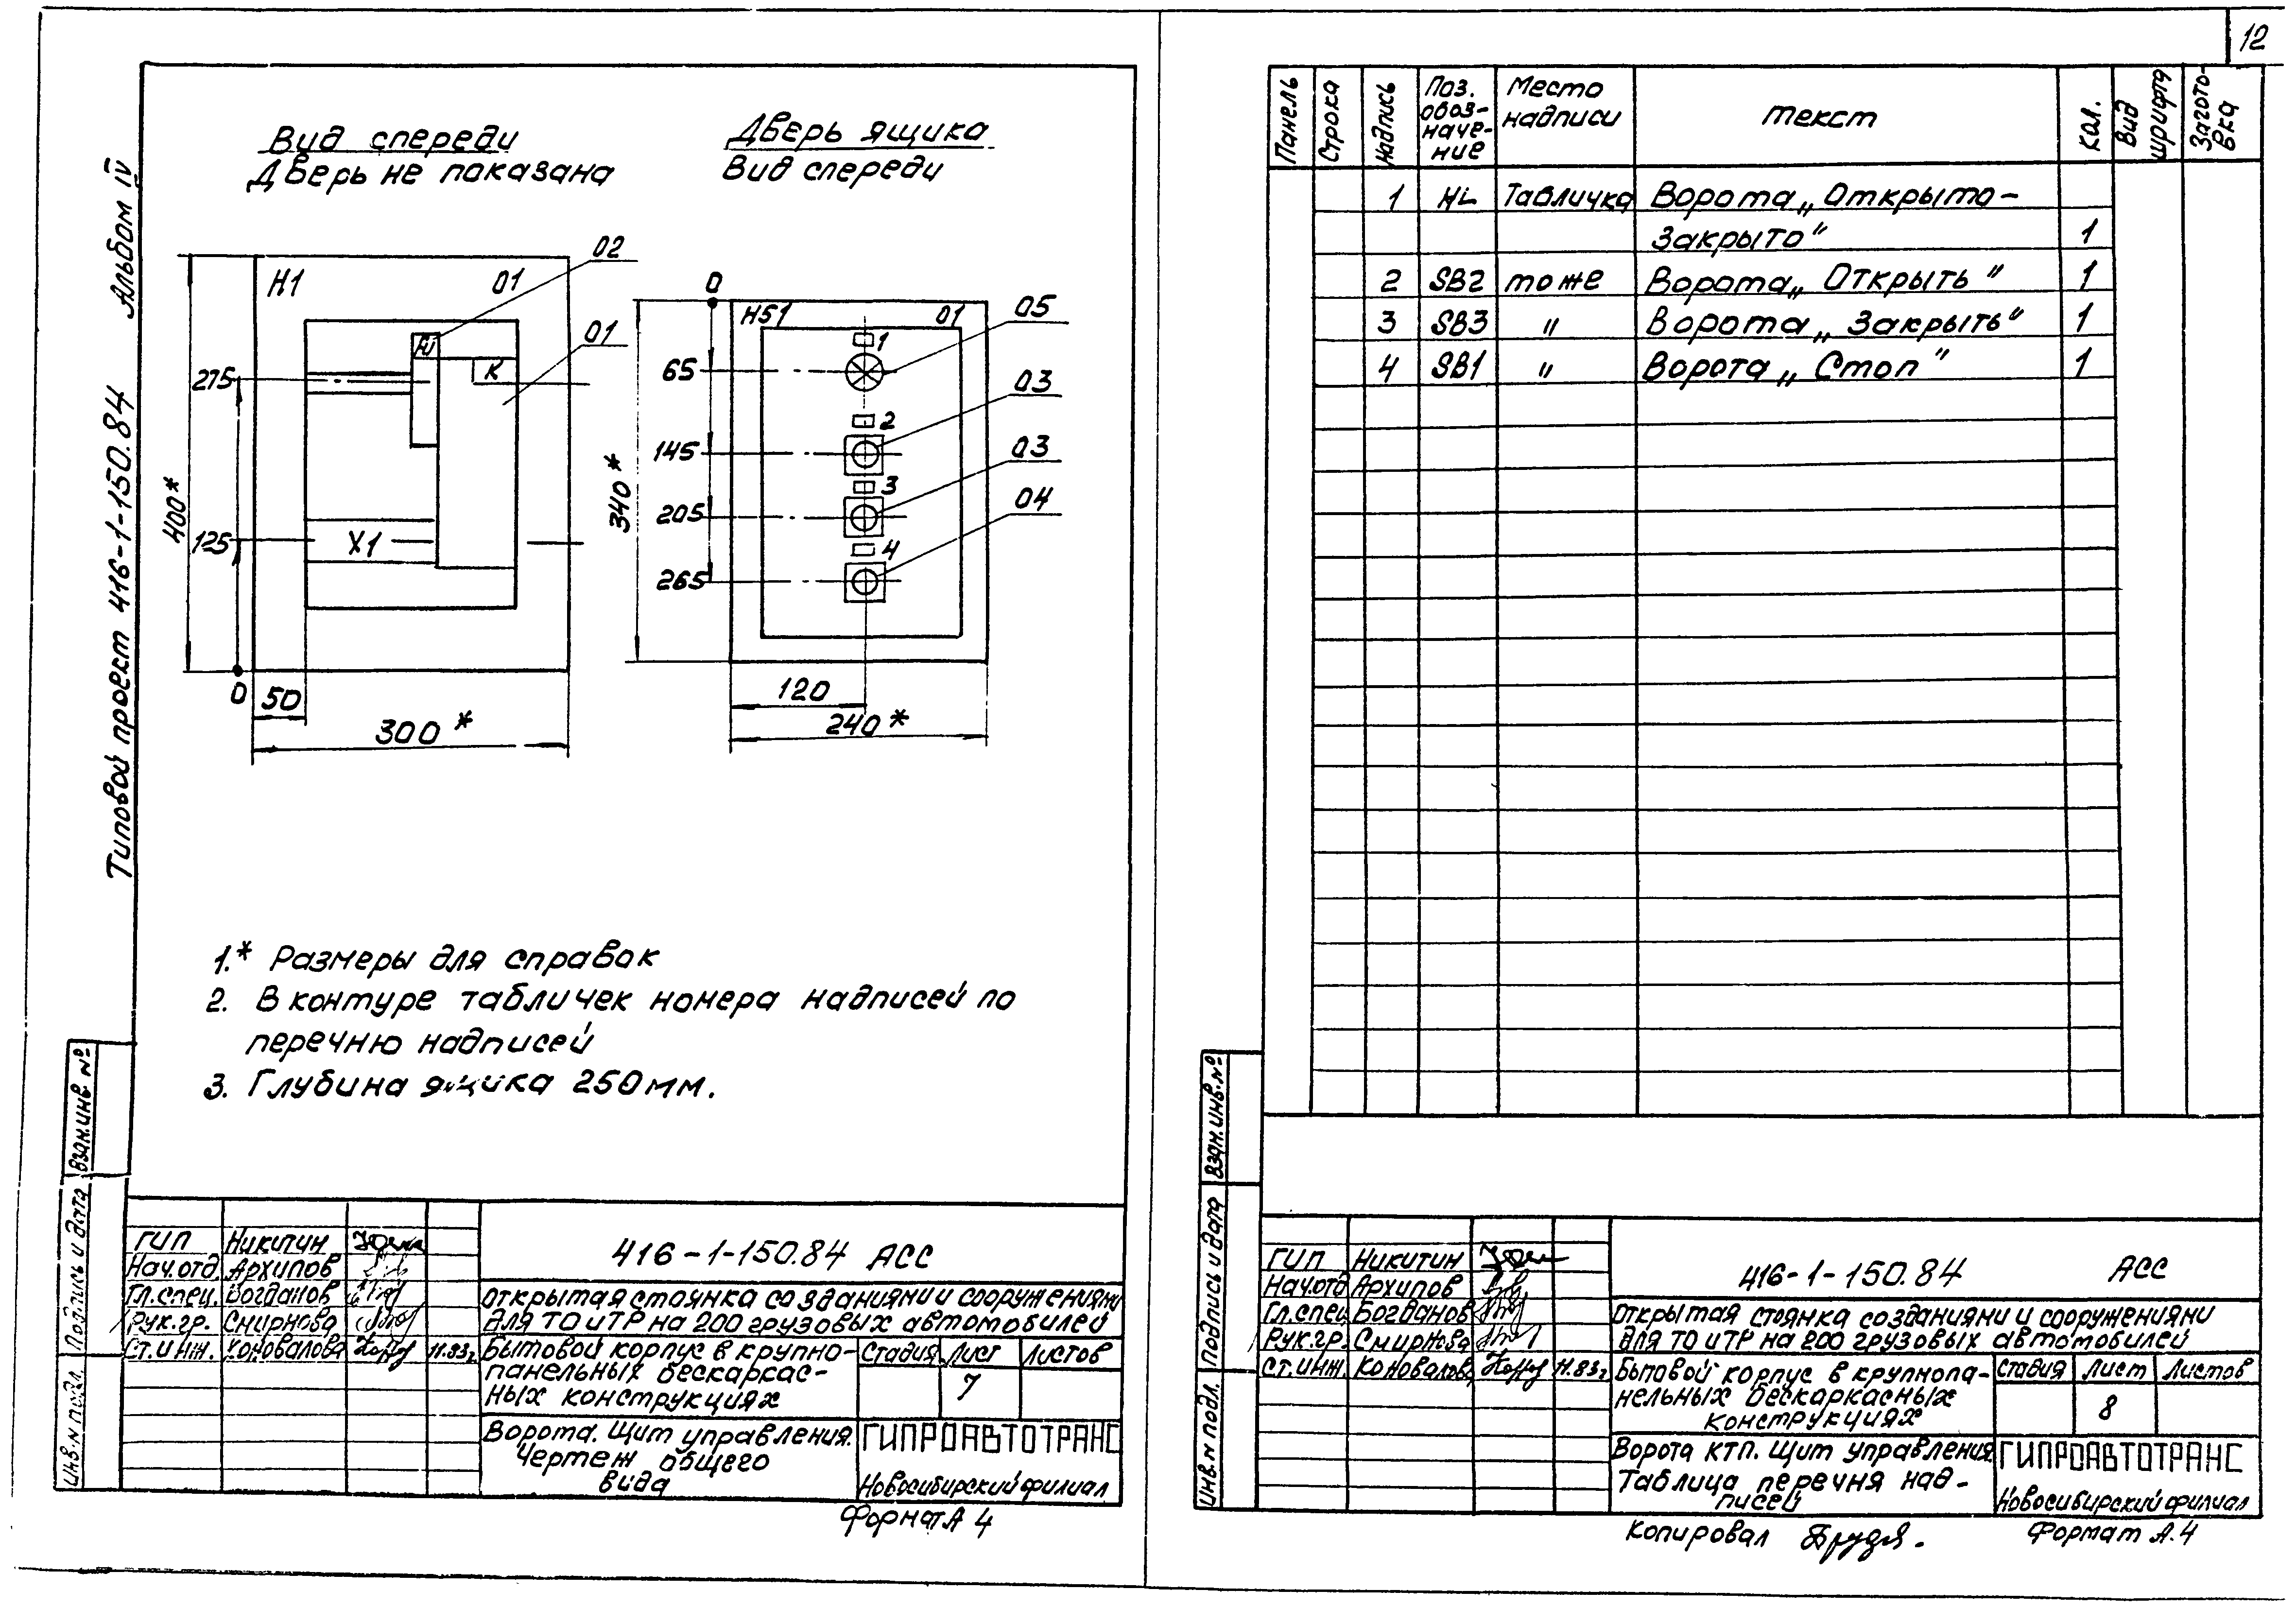 12
Типовой проект 416-1-150.84 Альбом IV
Вид спереди
Дверь не показана
Дверь ящика
Вид спереди
Н1
01
02
01
К
Х1
275
125
0
400*
50
300*
0
Н51
01
05
1
65
03
2
145
03
3
205
04
4
265
340*
120
240*
1.* Размеры для справок
2. В контуре табличек номера надписей по
перечню надписей
3. Глубина ящика 250мм.
Взам.инв.№
Подпись и дата
Инв.№ подл.
ГИП Никитин
Нач.отд. Архипов
Гл.спец. Богданов
Рук.гр. Смирнова
Ст.инж. Коновалова 11.83г
416-1-150.84 АСС
Открытая стоянка со зданиями и сооружениями
для ТО и ТР на 200 грузовых автомобилей
Бытовой корпус в крупно-
панельных бескаркас-
ных конструкциях
Стадия Лист Листов
7
Ворота. Щит управления.
Чертеж общего
вида
ГИПРОАВТОТРАНС
Новосибирский филиал
Формат А4
Панель Строка Надпись Поз. обоз- наче- ние Место надписи Текст Кол. Вид шрифта Загото- вка
1 HL Табличка Ворота „Открыто-
Закрыто" 1
2 SB2 то же Ворота „Открыть" 1
3 SB3 " Ворота „Закрыть" 1
4 SB1 " Ворота „Стоп" 1
Взам.инв.№
Подпись и дата
Инв.№ подл.
ГИП Никитин
Нач.отд Архипов
Гл.спец. Богданов
Рук.гр. Смирнова
Ст.инж. Коновалова 11.83г
416-1-150.84 АСС
Открытая стоянка со зданиями и сооружениями
для ТО и ТР на 200 грузовых автомобилей
Бытовой корпус в крупнопа-
нельных бескаркасных
конструкциях
Стадия Лист Листов
8
Ворота КТП. Щит управления.
Таблица перечня над-
писей
ГИПРОАВТОТРАНС
Новосибирский филиал
Копировал
Формат А.4